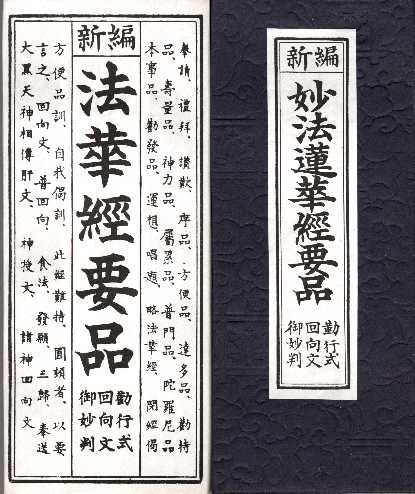 新編
奉請、禮拜、讃歎、序品、方便品、達多品、勸持
品、壽量品、神力品、屬累品、普門品、陀羅尼品
本事品、勸發品、運想、唱題、略法華經、開經偈
法華經要品
勤行式
回向文
御妙判
方便品訓、自我偈訓、此經難持、圓頓者、以要
言之、回向文、普回向、食法、發願、三歸、奉送
大黑天神相傳肝文、神授文、諸神回向文
新編
妙法蓮華經要品
勤行式
回向文
御妙判